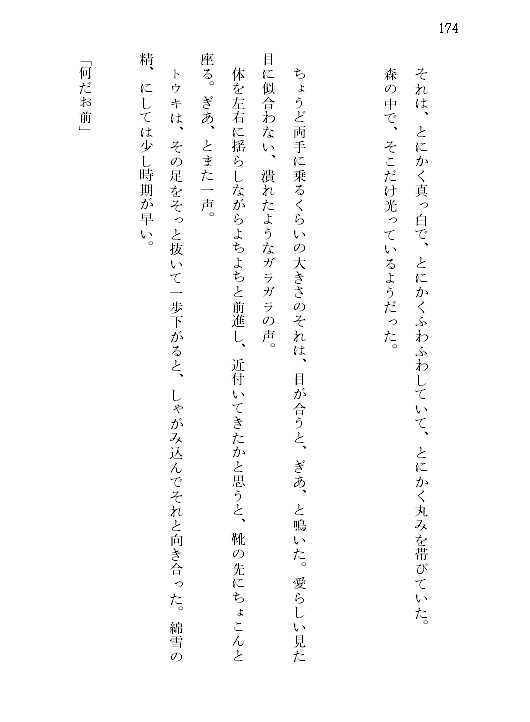 174
それは、とにかく真っ白で、とにかくふわふわしていて、とにかく丸みを帯びていた。
森の中で、そこだけ光っているようだった。
ちょうど両手に乗るくらいの大きさのそれは、目が合うと、ぎあ、と鳴いた。愛らしい見た
目に似合わない、潰れたようなガラガラの声。
体を左右に揺らしながらよちよちと前進し、近付いてきたかと思うと、靴の先にちょこんと
座る。ぎあ、とまた一声。
トウキは、その足をそっと抜いて一歩下がると、しゃがみ込んでそれと向き合った。綿雪の
精、にしては少し時期が早い。
「何だお前」